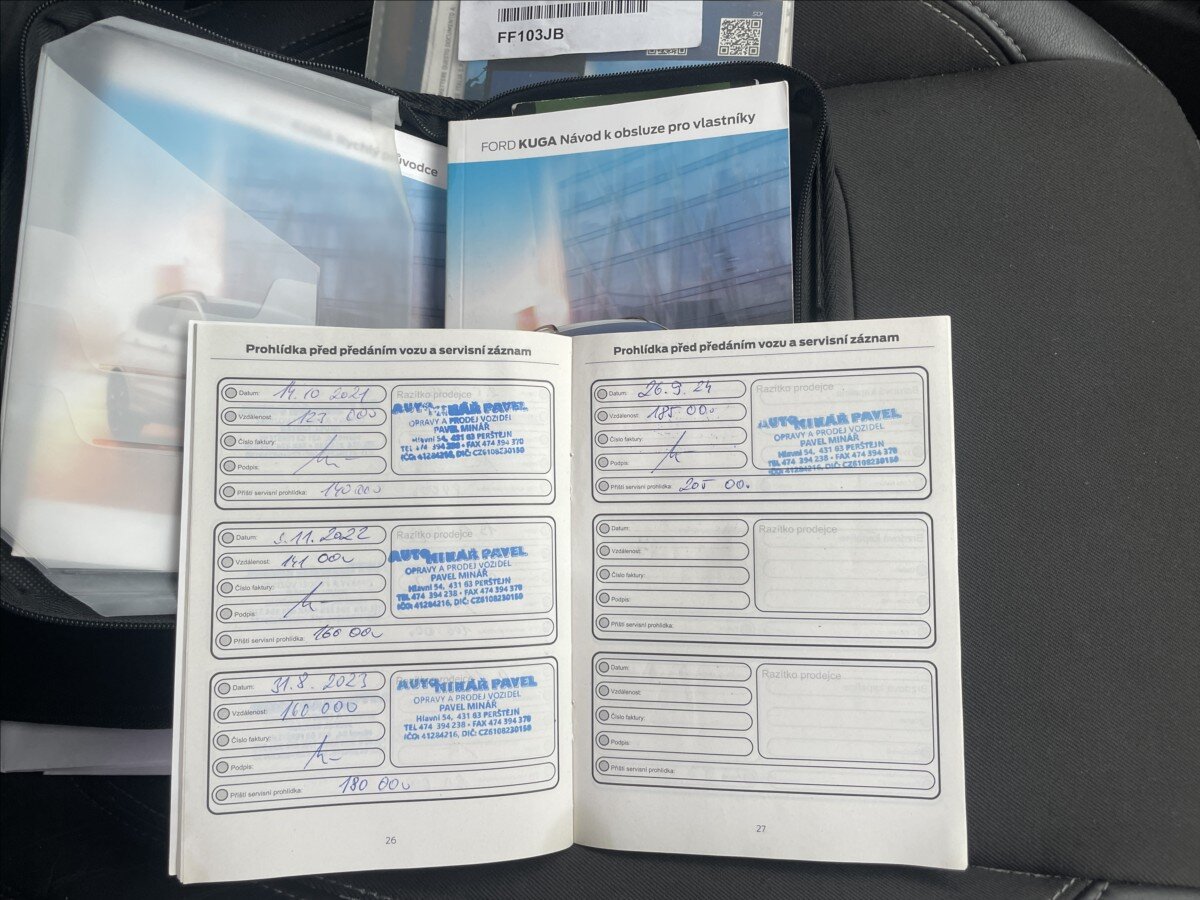 FF103JB
FORD KUGA Návod k obsluze pro vlastníky
KUGA Rychlý průvodce
Prohlídka před předáním vozu a servisní záznam
Datum: 14.10 2021
Vzdálenost: 127 000
Číslo faktury:
Podpis:
Příští servisní prohlídka: 140 000
Razítko prodejce
AUTO MINÁŘ PAVEL
OPRAVY A PRODEJ VOZIDEL
PAVEL MINÁŘ
Hlavní 54, 431 63 PERŠTEJN
TEL 474 394 238 • FAX 474 394 370
IČO: 41284216, DIČ: CZ6108230150
Datum: 3.11.2022
Vzdálenost: 141 000
Číslo faktury:
Podpis:
Příští servisní prohlídka: 160 000
Razítko prodejce
AUTO MINÁŘ PAVEL
OPRAVY A PRODEJ VOZIDEL
PAVEL MINÁŘ
Hlavní 54, 431 63 PERŠTEJN
TEL 474 394 238 • FAX 474 394 370
IČO: 41284216, DIČ: CZ6108230150
Datum: 31.8.2023
Vzdálenost: 160 000
Číslo faktury:
Podpis:
Příští servisní prohlídka: 180 000
Razítko prodejce
AUTO MINÁŘ PAVEL
OPRAVY A PRODEJ VOZIDEL
PAVEL MINÁŘ
Hlavní 54, 431 63 PERŠTEJN
TEL 474 394 238 • FAX 474 394 370
IČO: 41284216, DIČ: CZ6108230150
26
Prohlídka před předáním vozu a servisní záznam
Datum: 26.9.24
Vzdálenost: 185 000
Číslo faktury:
Podpis:
Příští servisní prohlídka: 205 000
Razítko prodejce
AUTO MINÁŘ PAVEL
OPRAVY A PRODEJ VOZIDEL
PAVEL MINÁŘ
Hlavní 54, 431 63 PERŠTEJN
TEL 474 394 238 • FAX 474 394 370
IČO: 41284216, DIČ: CZ6108230150
Datum:
Vzdálenost:
Číslo faktury:
Podpis:
Příští servisní prohlídka:
Razítko prodejce
Datum:
Vzdálenost:
Číslo faktury:
Podpis:
Příští servisní prohlídka:
Razítko prodejce
27